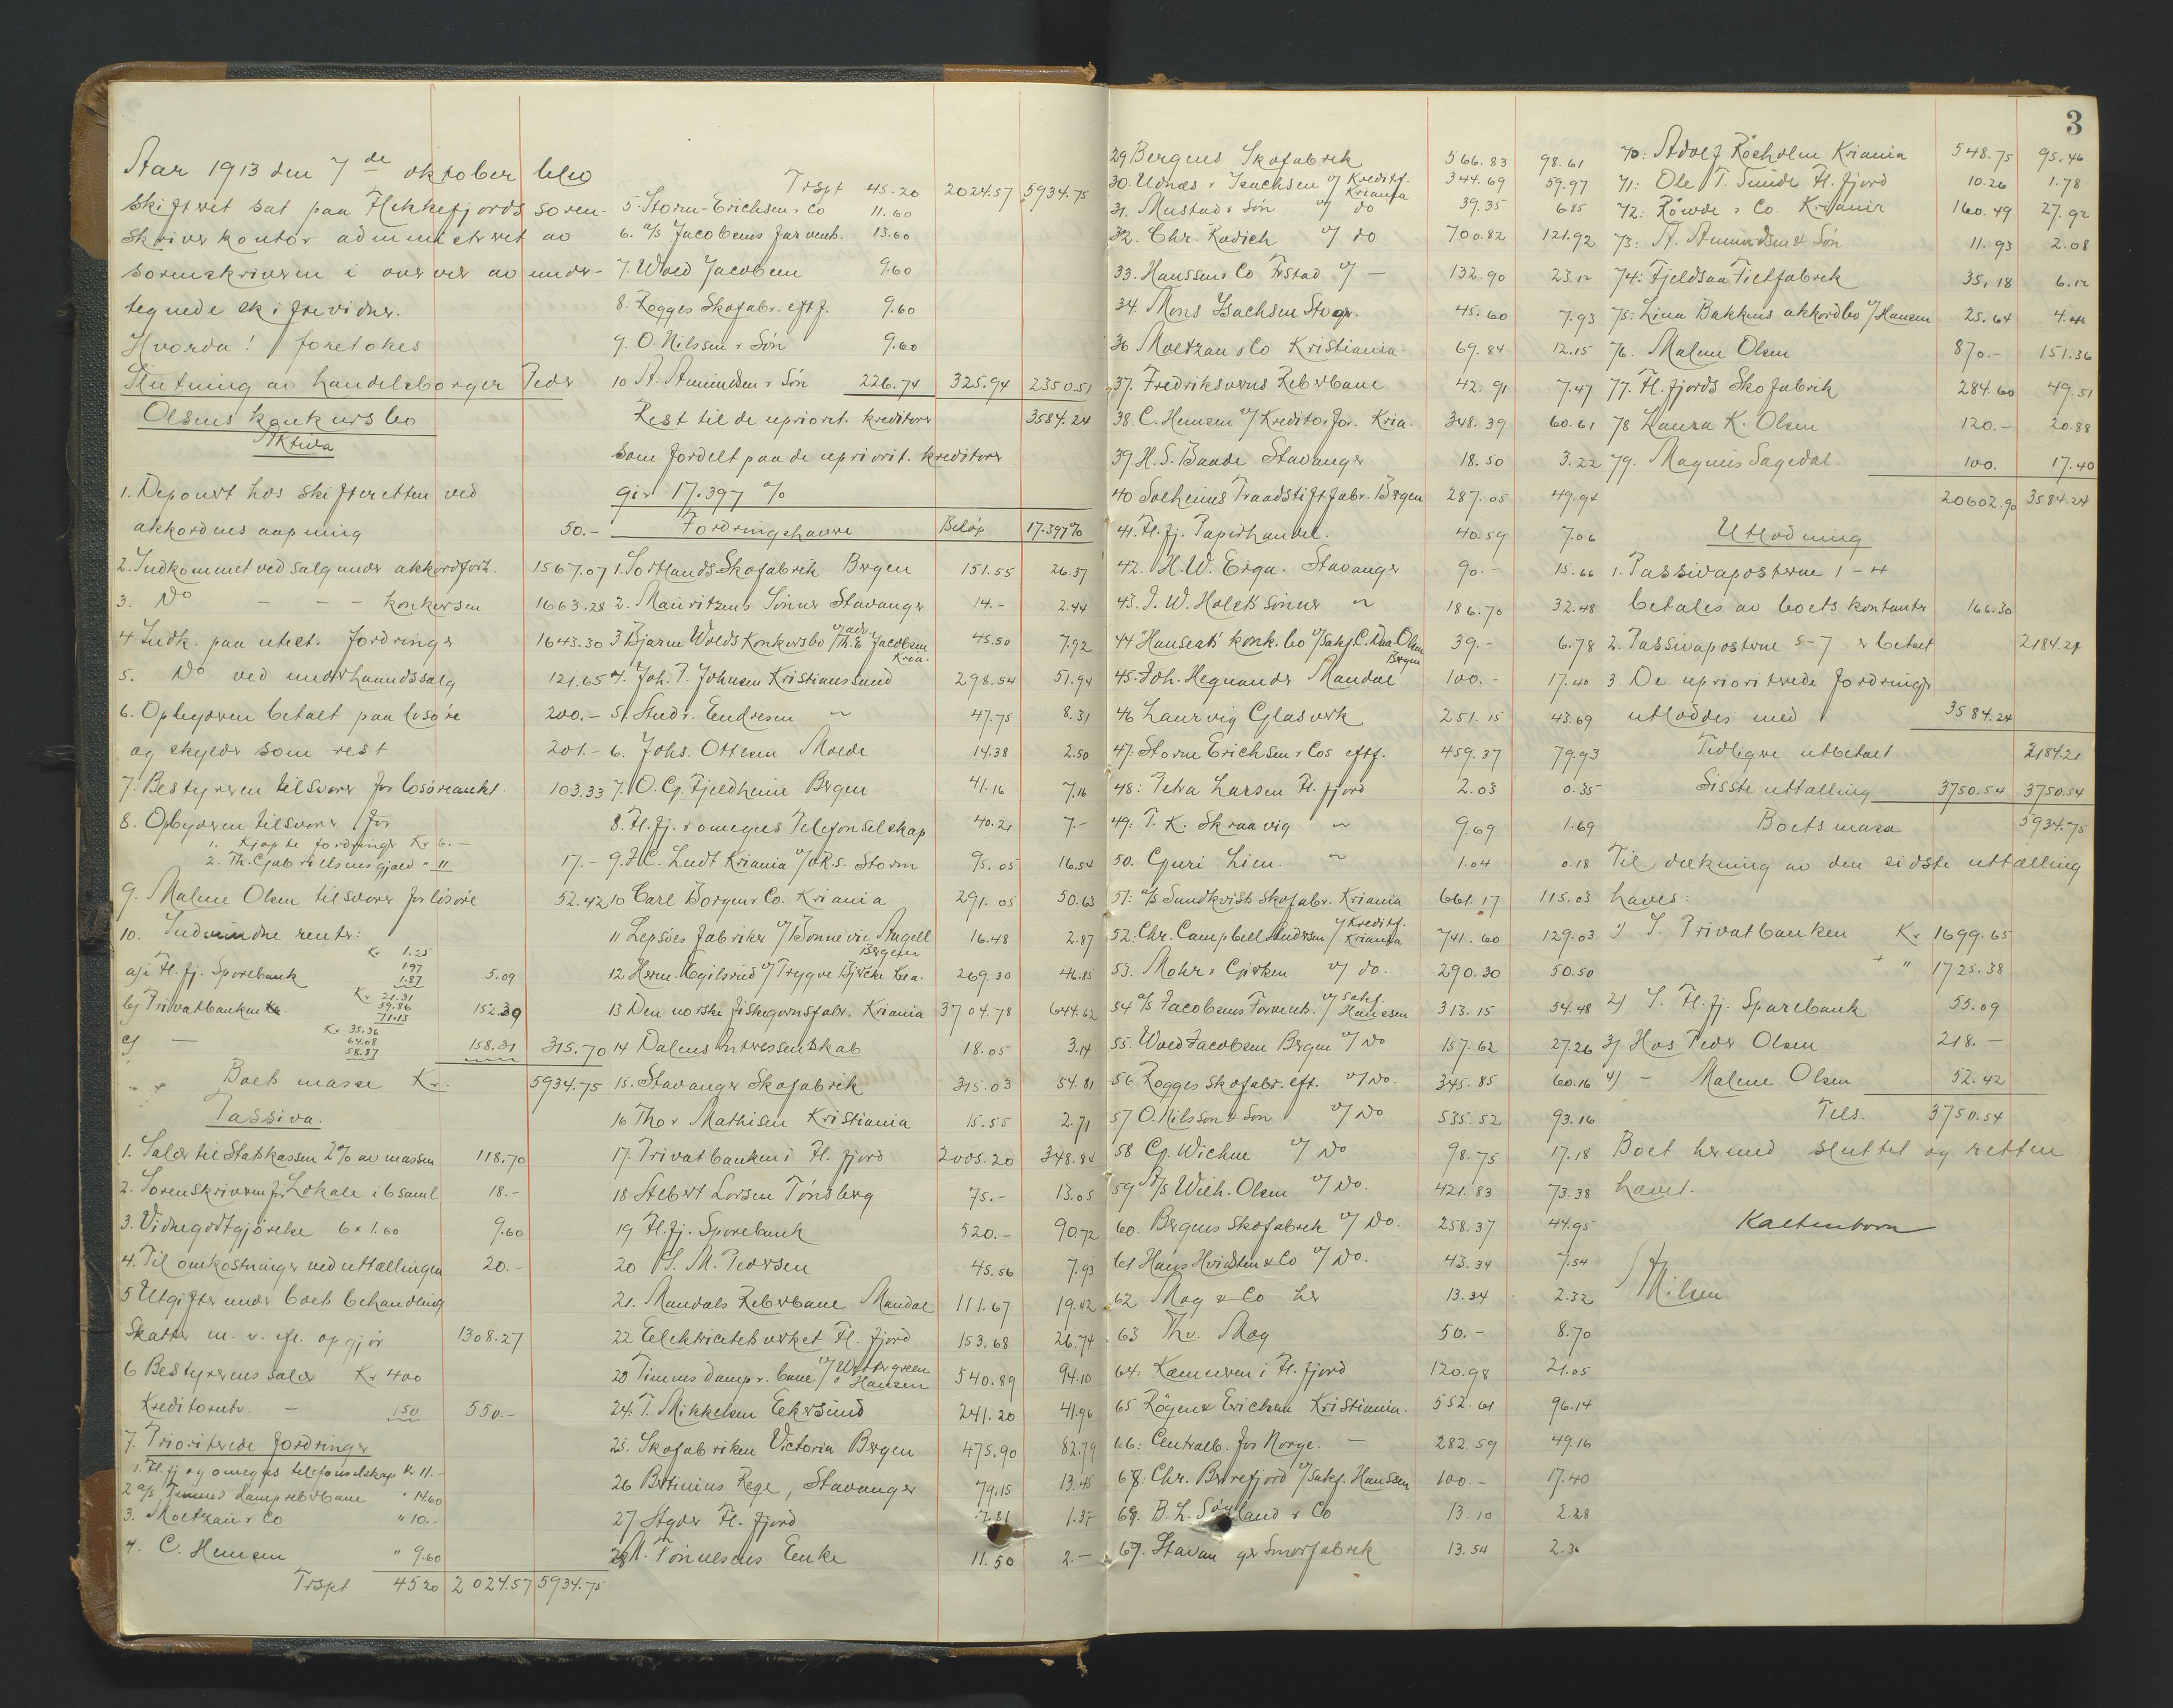 Aar 1913 den 7de oktober blev
skifteret sat paa Flekkefjords soren-
skriverkontor administreret av
sorenskriveren i overvær av under-
tegnede skiftevidner.
Hvorda! foretokes
Slutning av handelsborger Peder
Olsens konkursbo
Aktiva
1. Deponert hos skifteretten ved
akkordens aapning 50.-
2. Indkommet ved salg under akkordforh. 1567.07
3. Do - - - konkursen 1663.28
4 Indk. paa utest. fordringer 1643.30
5. Do ved underhaandssalg 121.65
6. Opbyderen betalt paa løsøre 200.-
og skylder som rest 201.-
7. Bestyreren tilsvarer for løsøreaukt. 103.33
8. Opbyderen tilsvarer for
1. Kjøpte fordringer Kr 6.-
2. Th. Gabrielsens gjæld " 11 17.-
9. Malene Olsen tilsvarer for løsøre 52.42
10. Indvundne renter:
Kr 1.25
a) i Fl. fj. Sparebank 1.97 5.09
1.87
Kr 21.31
b) Privatbanken 59.86 152.30
71.13
Kr 35.36
c) - 64.08 158.31 315.70
58.87
Boets masse Kr. 5934.75
Passiva.
1. Salær til Statskassen 2% av massen 118.70
2. Sorenskriveren for Lokale i 6 saml 18.-
3. Vidnegodtgjørelse 6 x 1.60 9.60
4. Til omkostninger ved uttællingen 20.-
5 Utgifter under boets behandling
Skatter m. v. efl. opgjør 1308.27
6 Bestyrerens salær Kr 400
Kreditorutv. - 150 550.-
7. Prioriterede fordringer
1. Fl. fj og omegns telefonselskap Kr 11.-
2 a/s Timmes Dampreberbane " 14.60
3. Moltzau & Co " 10.-
4. C. Hensen " 9.60
Trspt 45.20 2024.57 5934.75
Trspt 45.20 2024.57 5934.75
5. Storm-Erichsen & Co 11.60
6. a/s Jacobsens farveh. 13.60
7. Wold Jacobsen 9.60
8. Rogges Skofabr. eftf. 9.60
9. O. Nilssen & Søn 9.60
10 A. Amundsen & Søn 226.74 325.94 2350.51
Rest til de upriorit. kreditorer 3584.24
som fordelt paa de upriorit. kreditorer
gir 17.397 %
Fordringshavere Beløp 17.397%
1. Sortlands Skofabrik Bergen 151.55 26.37
2. Mauritzens Sønner Stavanger 14.- 2.44
3 Bjarne Wolds Konkursbo v/ adv. Th. E Jacobsen Kria. 45.50 7.92
4. Joh. P. Johnsen Kristianssund 298.54 51.94
5. Andr. Endresen ~ 47.75 8.31
6. Johs. Ottesen Molde 14.38 2.50
7. O. G. Fjeldheim Bergen 41.16 7.16
8. Fl. fj. & omegns Telefonselskap 40.21 7.-
9. J. C. Ludt Kriania v/ ORs. Storm 95.05 16.54
10 Carl Borgen & Co. Kriania 291.05 50.63
11 Lepsøes fabriker v/ Bonnevie Angell Bergen 16.48 2.87
12 Herm. Egilsrud v/ Trygve Bjercke Kria. 269.30 46.85
13 Den norske fiskegarnsfabr. Kriania 3704.78 644.62
14 Dalens Interessentskab 18.05 3.14
15. Stavanger Skofabrik 315.03 54.81
16 Thor Mathisen Kristiania 15.55 2.71
17. Privatbanken i Fl. fjord 2005.20 348.84
18 Albert Larsen Tønsberg 75.- 13.05
19 Fl. fj. Sparebank 520.- 90.72
20 S. M. Pedersen 45.56 7.93
21. Mandals Reberbane Mandal 111.67 19.42
22 Elektricitetsverket Fl. fjord 153.68 26.74
23 Timmes Dampr. bane v/ Wettergreen & Hansen 540.89 94.10
24. T. Mikkelsen Eekersund 241.20 41.96
25. Skofabriken Victoria Bergen 475.90 82.79
26 Bertinius Rege, Stavanger 79.15 13.45
27 Agder Fl. fjord 7.81 1.37
28 A. Tønnesens Enke 11.50 2.-
29 Bergens Skofabrik 566.83 98.61
30. Udnæs & Isachsen v/ Kreditf. Kriania 344.69 59.97
31. Mustad & Søn v/ do 39.35 6.85
32. Chr. Radich v/ do 700.82 121.92
33. Hanssen & Co F.stad v/ - 132.90 23.12
34. Mons Isachsen Stvgr. 45.60 7.93
36 Moltzau & Co Kristiania 69.84 12.15
37. Fredriksverns Reberbane 42.91 7.47
38. C. Hensen v/ Kreditorfor. Kria. 348.39 60.61
39. H. S. Baade Stavanger 18.50 3.22
40 Solheims Traadstiftfabr. Bergen 287.05 49.94
41. Fl. fj. Papirhandel. 40.59 7.06
42. H. W. Erga. Stavanger 90.- 15.66
43. I. W. Holcks Sønner ~ 186.70 32.48
44 "Hanseat" konk. bo v/ Sakf. C. Dar Olsen Bergen 39.- 6.78
45. Joh. Hegnander Mandal 100.- 17.40
46 Laurvig Glasverk 251.15 43.69
47. Storm Erichsen & Cos eftf. 459.37 79.93
48: Petra Larsen Fl. fjord 2.03 0.35
49: T. K. Skraavig ~ 9.69 1.69
50. Guri Lien. ~ 1.04 0.18
51: a/s Sundkvist Skofabr. Kriania 661.17 115.03
52: Chr. Campbell Andersen v/ Kreditf. Kriania 741.60 129.03
53. Mohr & Gjerken v/ do. 290.30 50.50
54 a/s Jacobsens Farveh. v/ Sakf. Hanssen 313.15 54.48
55. Wold Jacobsen Bergen v/ Do 157.62 27.26
56 Rogges Skofabr. eft. v/ Do. 345.85 60.16
57 O. Nilsson & Søn v/ Do 535.52 93.16
58 G. Wiehne v/ Do 98.75 17.18
59 A/s Wilh. Olsen v/ Do. 421.83 73.38
60. Bergens Skofabrik v/ Do. 258.37 44.95
61 Hans Hvidsten & Co v/ Do. 43.34 7.54
62 Mog & Co her 13.34 2.32
63 Thv. Mog 50.- 8.70
64: Kæmneren i Fl. fjord 120.98 21.05
65 Røgen & Erichsen Kristiania. 552.61 96.14
66: Centralb. for Norge. - 282.59 49.16
68: Chr. Berrefjord v/ Sakf. Hanssen 100.- 17.40
69. B. L. Søyland & Co 13.10 2.28
69. Stavanger Smørfabrik 13.54 2.36
3
70: Adolf Röeholm Kriania 548.75 95.46
71: Ole T. Sunde Fl. fjord 10.26 1.78
72: Röwde & Co. Kriania 160.49 27.92
73: A. Amundsen & Søn 11.93 2.08
74: Fjeldsaa Filtfabrik 35.18 6.12
75: Lina Bakkens akkordbo v/ Hansen 25.64 4.46
76. Malene Olsen 870.- 151.36
77. Fl. fjords Skofabrik 284.60 49.51
78 Laura K. Olsen 120.- 20.88
79. Magnus Sagedal. 100. 17.40
20602.90 3584.24
Utlodning
1. Passivaposterne 1-4
betales av boets kontanter 166.30
2. Passivaposterne 5-7 er betalt 2184.21
3. De uprioriterede fordringer
utloddes med 3584.24
Tidligere utbetalt 2184.21
Sisste uttælling 3750.54 3750.54
Boets masse 5934.75
Til dækning av den sidste uttælling
haves:
1) I. Privatbanken Kr 1699.65
+ " 1725.38
2) I. Fl. fj. Sparebank 55.09
3) Hos Peder Olsen 218.-
4) - Malene Olsen 52.42
Tils. 3750.54
Boet hermed sluttet og retten
hævet.
Kaltenborn